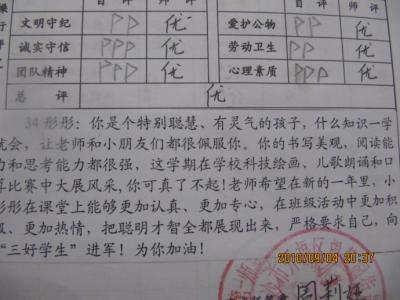 自 评 师 评 自 评 师 评
文明守纪 PP 优 爱护公物 PPP 优
诚实守信 PPP 优 劳动卫生 PPP 优
团队精神 PPP 优 心理素质 PPP 优
总 评 优
34 彤彤：你是个特别聪慧、有灵气的孩子，什么知识一学
就会，让老师和小朋友们都很佩服你。你的书写美观，阅读能
力和思考能力都很强，这学期在学校科技绘画、儿歌朗诵和口
算比赛中大展风采，你可真了不起！老师希望在新的一年里，小
彤彤在课堂上能够更加认真、更加专心，在班级活动中更加积
极、更加热情，把聪明才智全都展现出来，严格要求自己，向
“三好学生”进军！为你加油！
2010/09/04 20:37